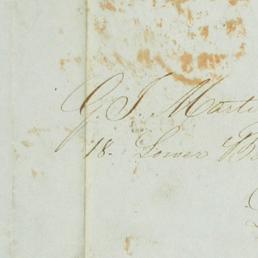 G. J. Marti
18. Lower